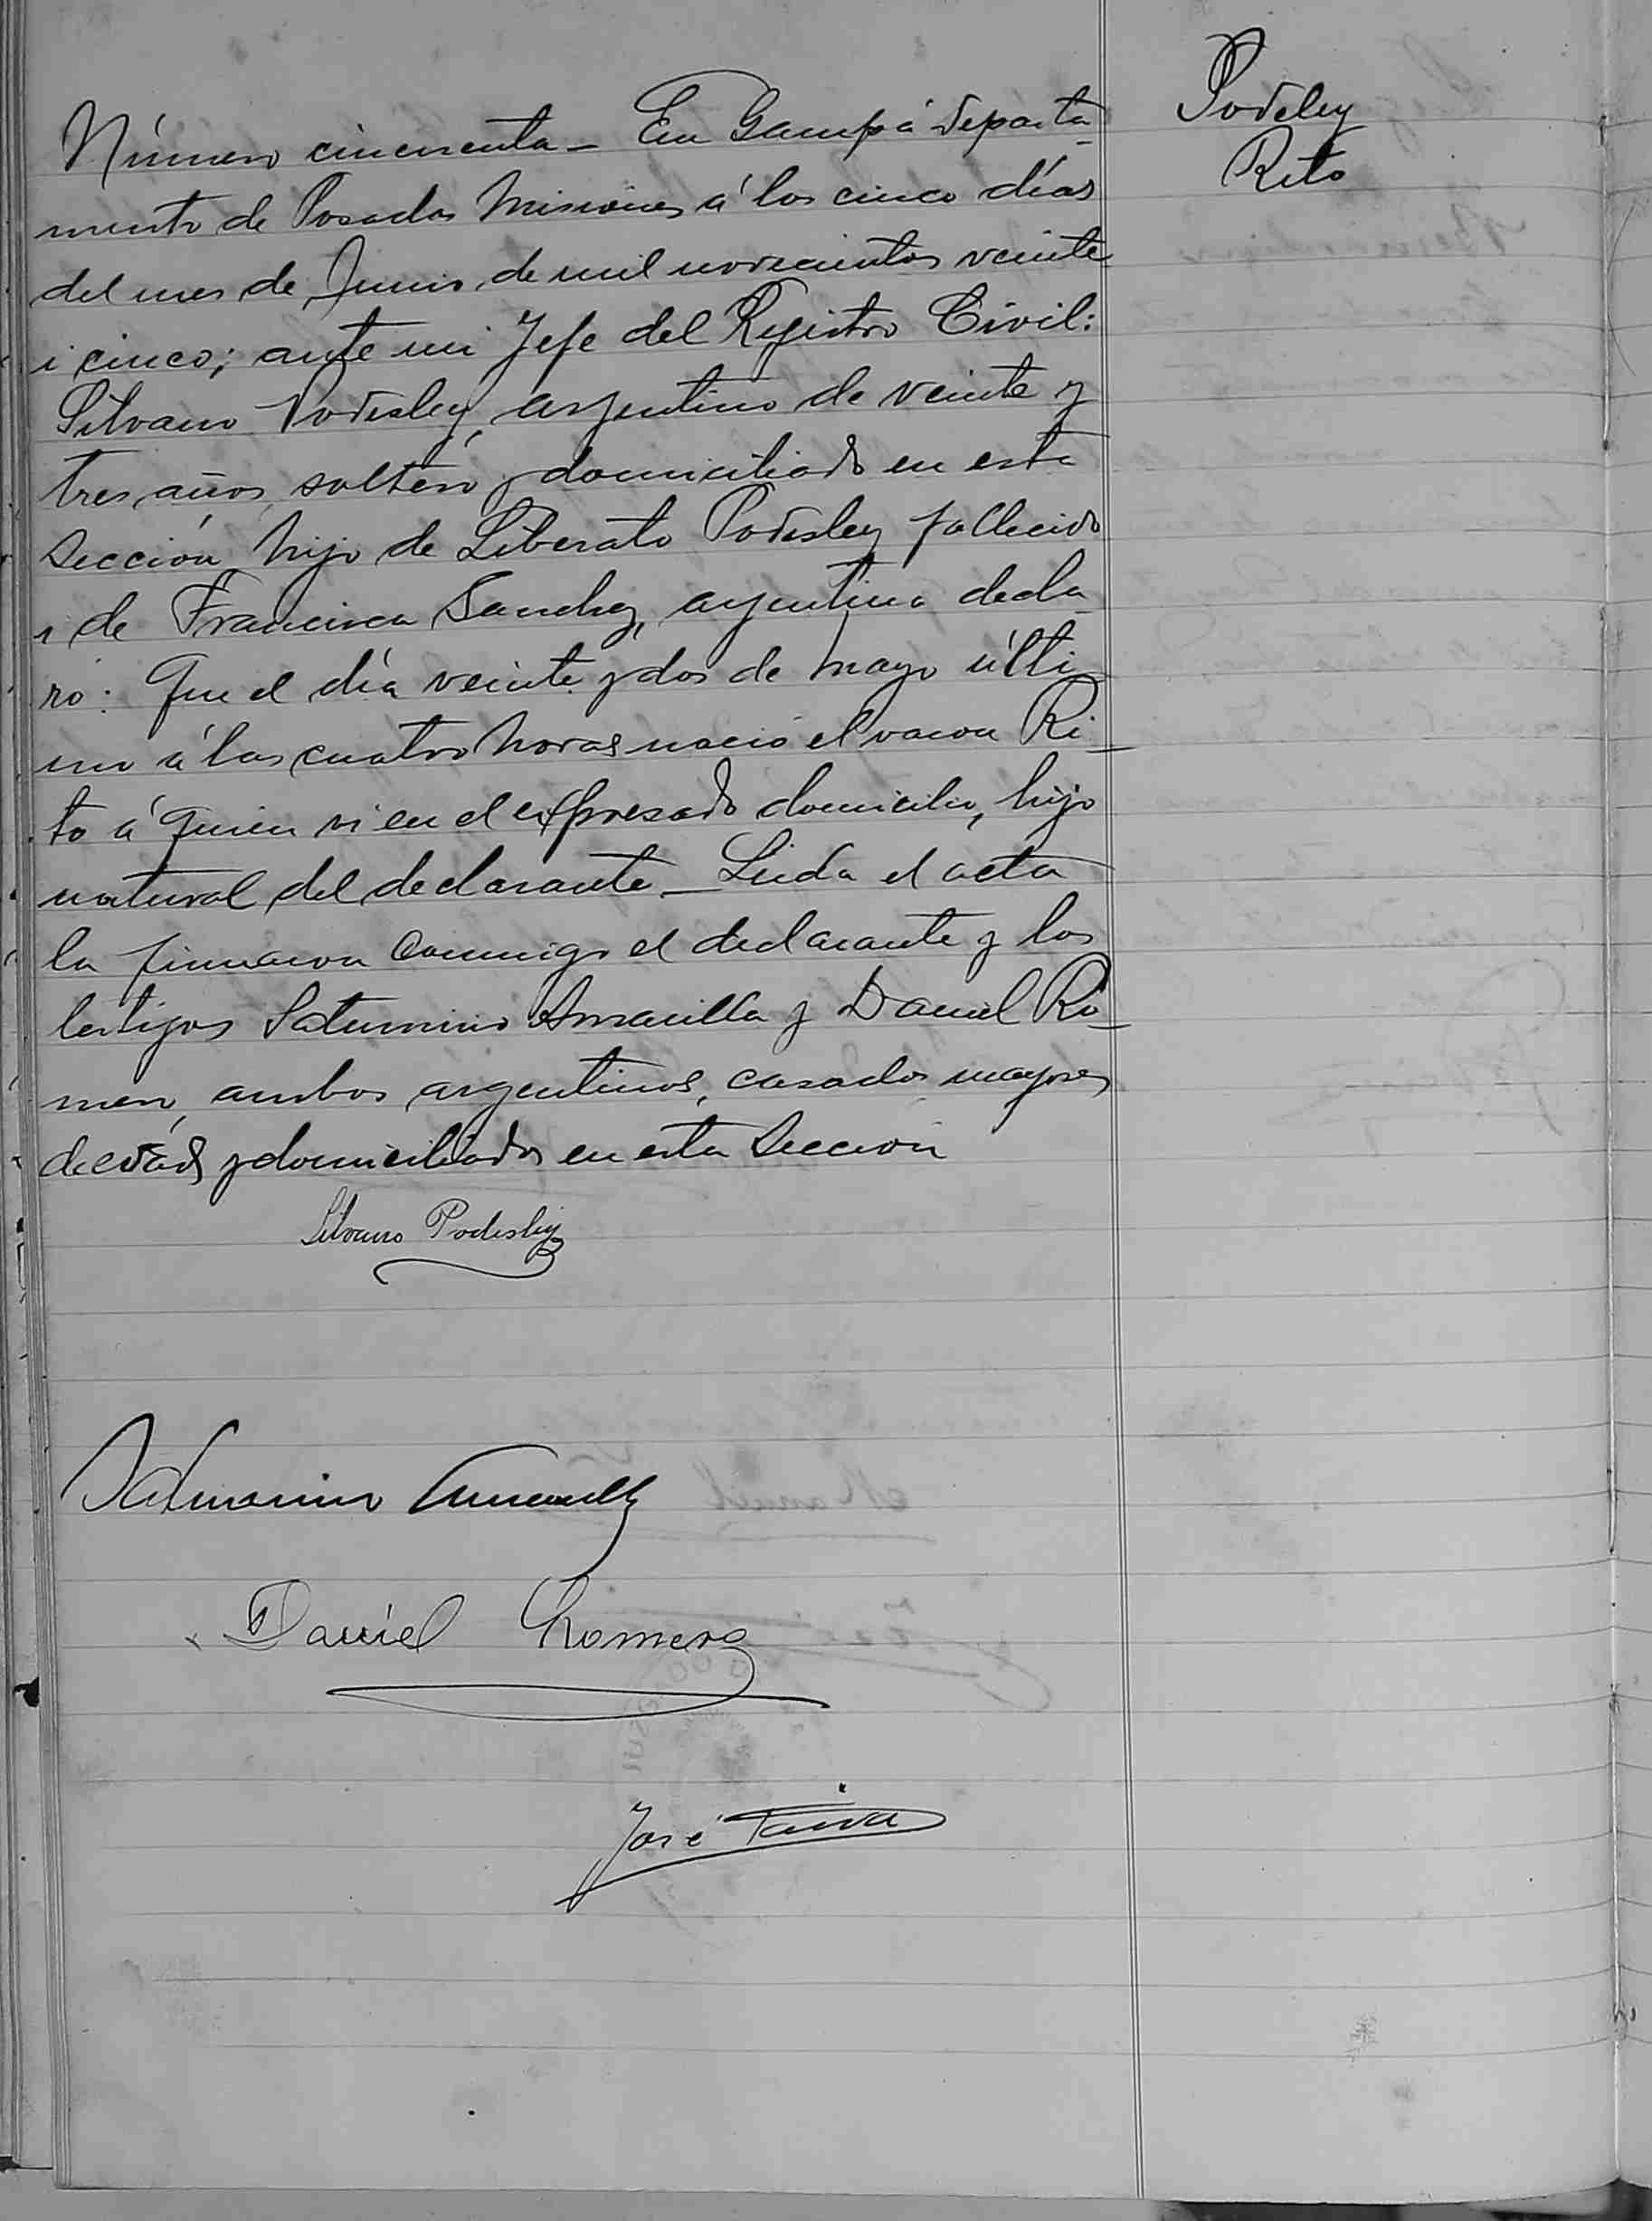 Podeley
Rito
Número cincuenta - En Garupá departa-
mento de Posadas Misiones á los cinco días
del mes de Junio de mil novecientos veinte
i cinco; ante mi Jefe del Registro Civil:
Silvano Podesley, argentino de veinte y
tres años, soltero y domiciliado en esta
Sección, hijo de Liberato Podesley fallecido
i de Francisca Sanchez, argentina decla-
ró: Que el día veinte y dos de Mayo últi-
mo á las cuatro horas nació el varon Ri-
to á quien vi en el expresado domicilio, hijo
natural del declarante - Leida el acta
la firmaron conmigo el declarante y los
testigos Saturnino Amarilla y Daniel Ro-
mero, ambos argentinos, casados mayores
de edad y domiciliados en esta Sección
Silvano Podesley
Saturnino Amarilla
Daniel Romero
José Paiva